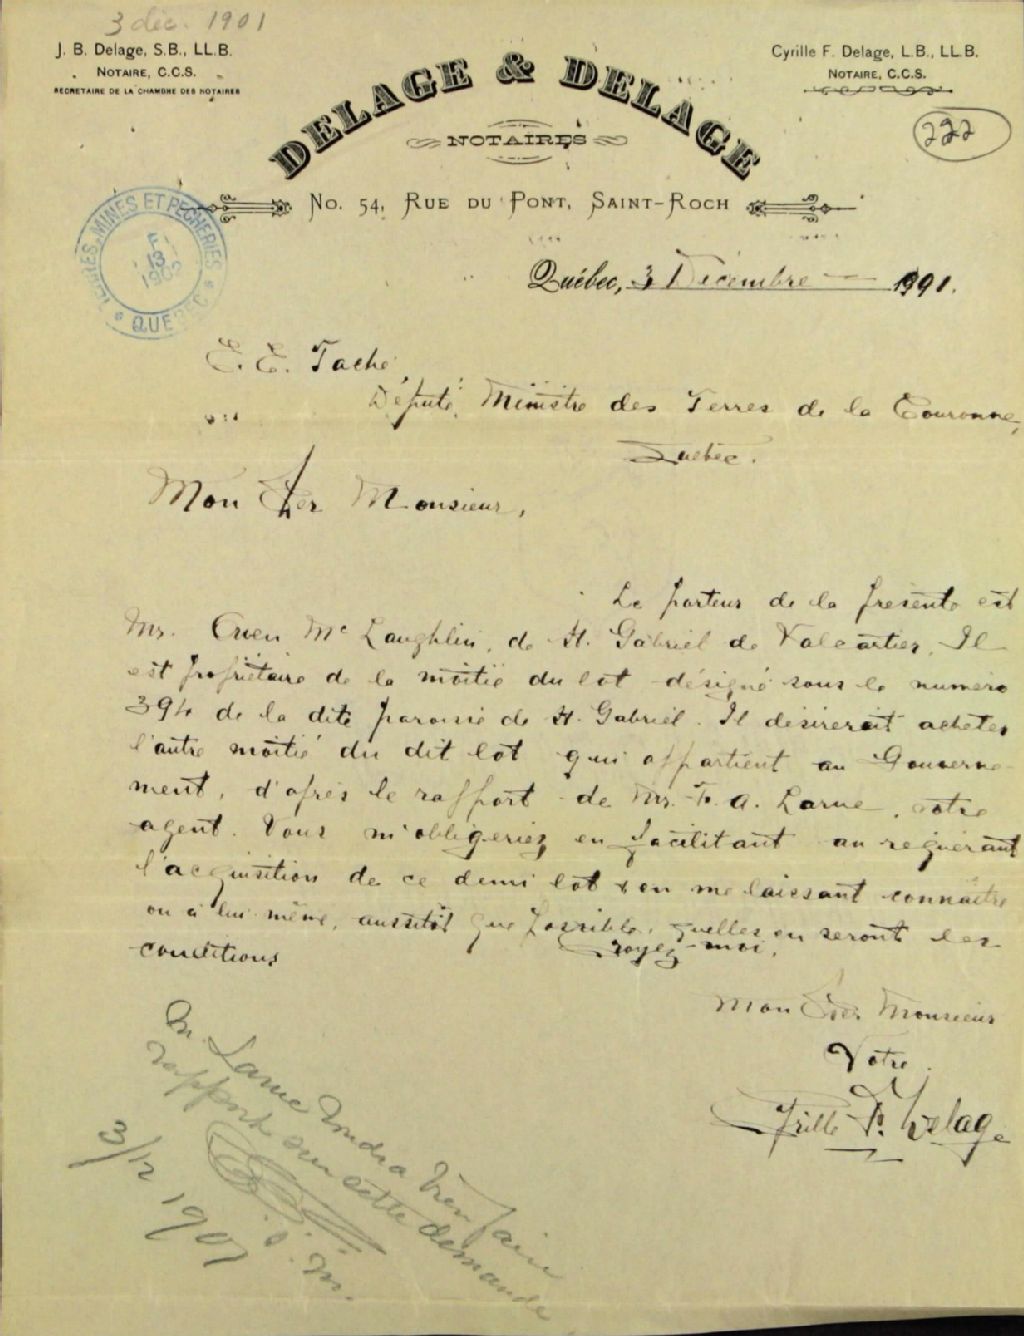 3 déc. 1901
J. B. Delage, S.B., LL.B.
NOTAIRE, C.C.S.
SECRETAIRE DE LA CHAMBRE DES NOTAIRES
Cyrille F. Delage, L.B., LL.B.
NOTAIRE, C.C.S.
222
DELAGE & DELAGE
NOTAIRES
No. 54, RUE DU PONT, SAINT-ROCH
TERRES, MINES ET PECHERIES
QUEBEC
Québec, 3 Décembre 1901.
E. E. Taché,
Député Ministre des Terres de la Couronne,
Québec.
Mon Cher Monsieur,
Le porteur de la présente est
Mr. Owen Mc Laughlin, de St. Gabriel de Valcartier. Il
est propriétaire de la moitié du lot désigné sous le numéro
394 de la dite paroisse de St. Gabriel. Il désirerait acheter
l'autre moitié du dit lot qui appartient au Gouverne-
ment, d'après le rapport de Mr. F. A. Larue, votre
agent. Vous m'obligeriez en facilitant au requérant
l'acquisition de ce demi lot & en me laissant connaître
ou à lui même, aussitôt que possible, quelles en seront les
conditions
Croyez-moi,
Mon Cher Monsieur
Votre
Cyrille F. Delage
M. Larue voudra bien faire
rapport sur cette demande
3/12 1901